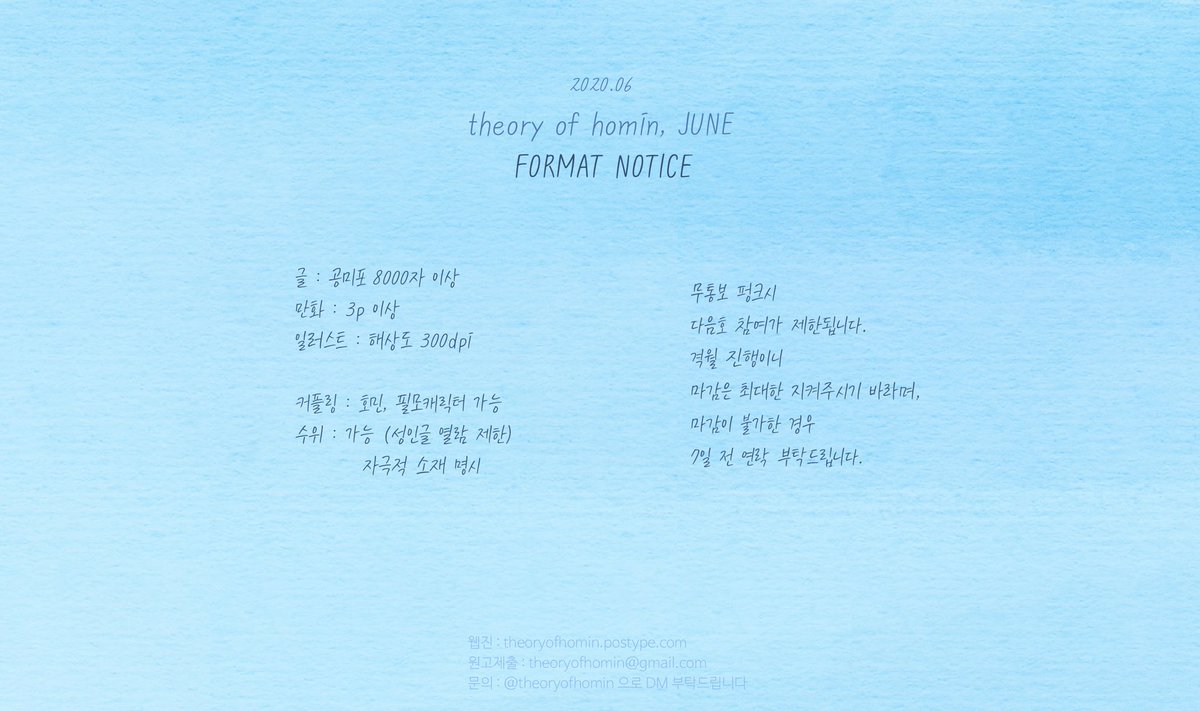 2020.06
theory of homin, JUNE
FORMAT NOTICE
글 : 공미포 8000자 이상
만화 : 3p 이상
일러스트 : 해상도 300dpi
커플링 : 호민, 필모캐릭터 가능
수위 : 가능 (성인글 열람 제한)
자극적 소재 명시
무통보 펑크시
다음호 참여가 제한됩니다.
격월 진행이니
마감은 최대한 지켜주시기 바라며,
마감이 불가한 경우
7일 전 연락 부탁드립니다.
웹진 : theoryofhomin.postype.com
원고제출 : theoryofhomin@gmail.com
문의 : @theoryofhomin 으로 DM 부탁드립니다